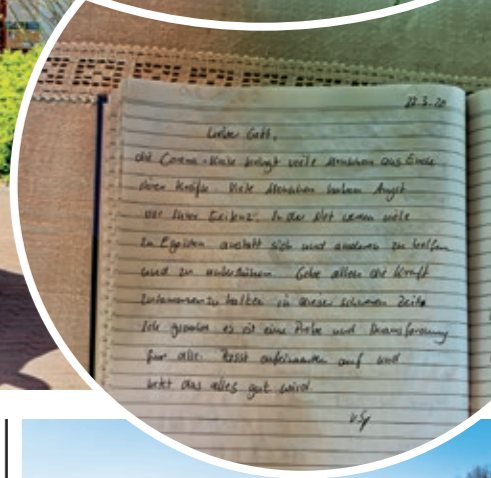 22.3.20
Lieber Gott,
die Corona-Krise bringt viele Menschen ans Ende
ihrer Kräfte. Viele Menschen haben Angst
vor ihrer Existenz. In der Not werden viele
zu Egoisten anstatt sich und anderen zu helfen
und zu unterstützen. Gebe allen die Kraft
zusammenzuhalten in dieser schweren Zeit.
Ich glaube es ist eine Probe und Herausforderung
für alle. Passt aufeinander auf und
betet das alles gut wird.